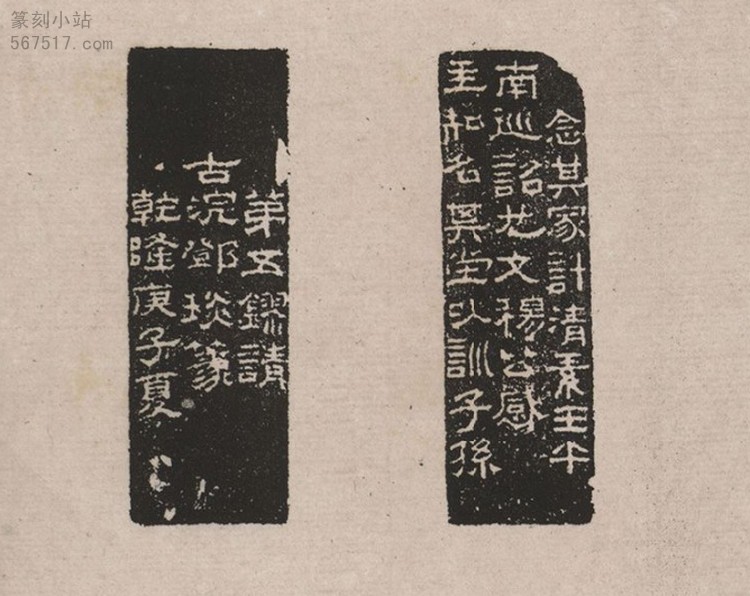 篆刻小站
567517.com
念其家計清素壬午
南巡詔也文穆公感
主知名其堂以訓子孫
第五鏐請
古浣鄧琰篆
乾隆庚子夏